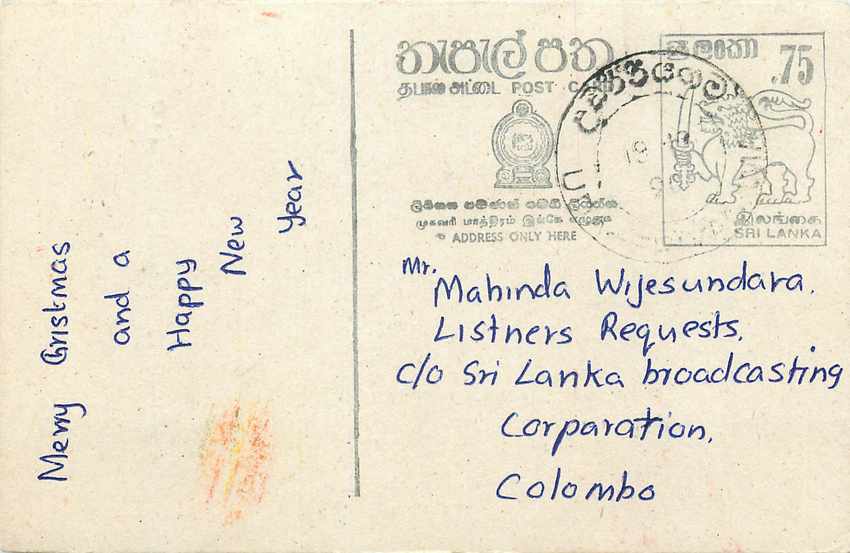 Merry Gristmas
and a
Happy
New
Year
තැපැල් පත
தபால் அட்டை POST CARD
ලිපිනය පමණක් මෙහි ලියන්න
முகவரி மாத்திரம் இங்கே எழுதுக
ADDRESS ONLY HERE
ශ්‍රී ලංකා
.75
இலங்கை
SRI LANKA
Mr. Mahinda Wijesundara.
Listners Requests.
c/o Sri Lanka broadcasting
Corparation.
Colombo